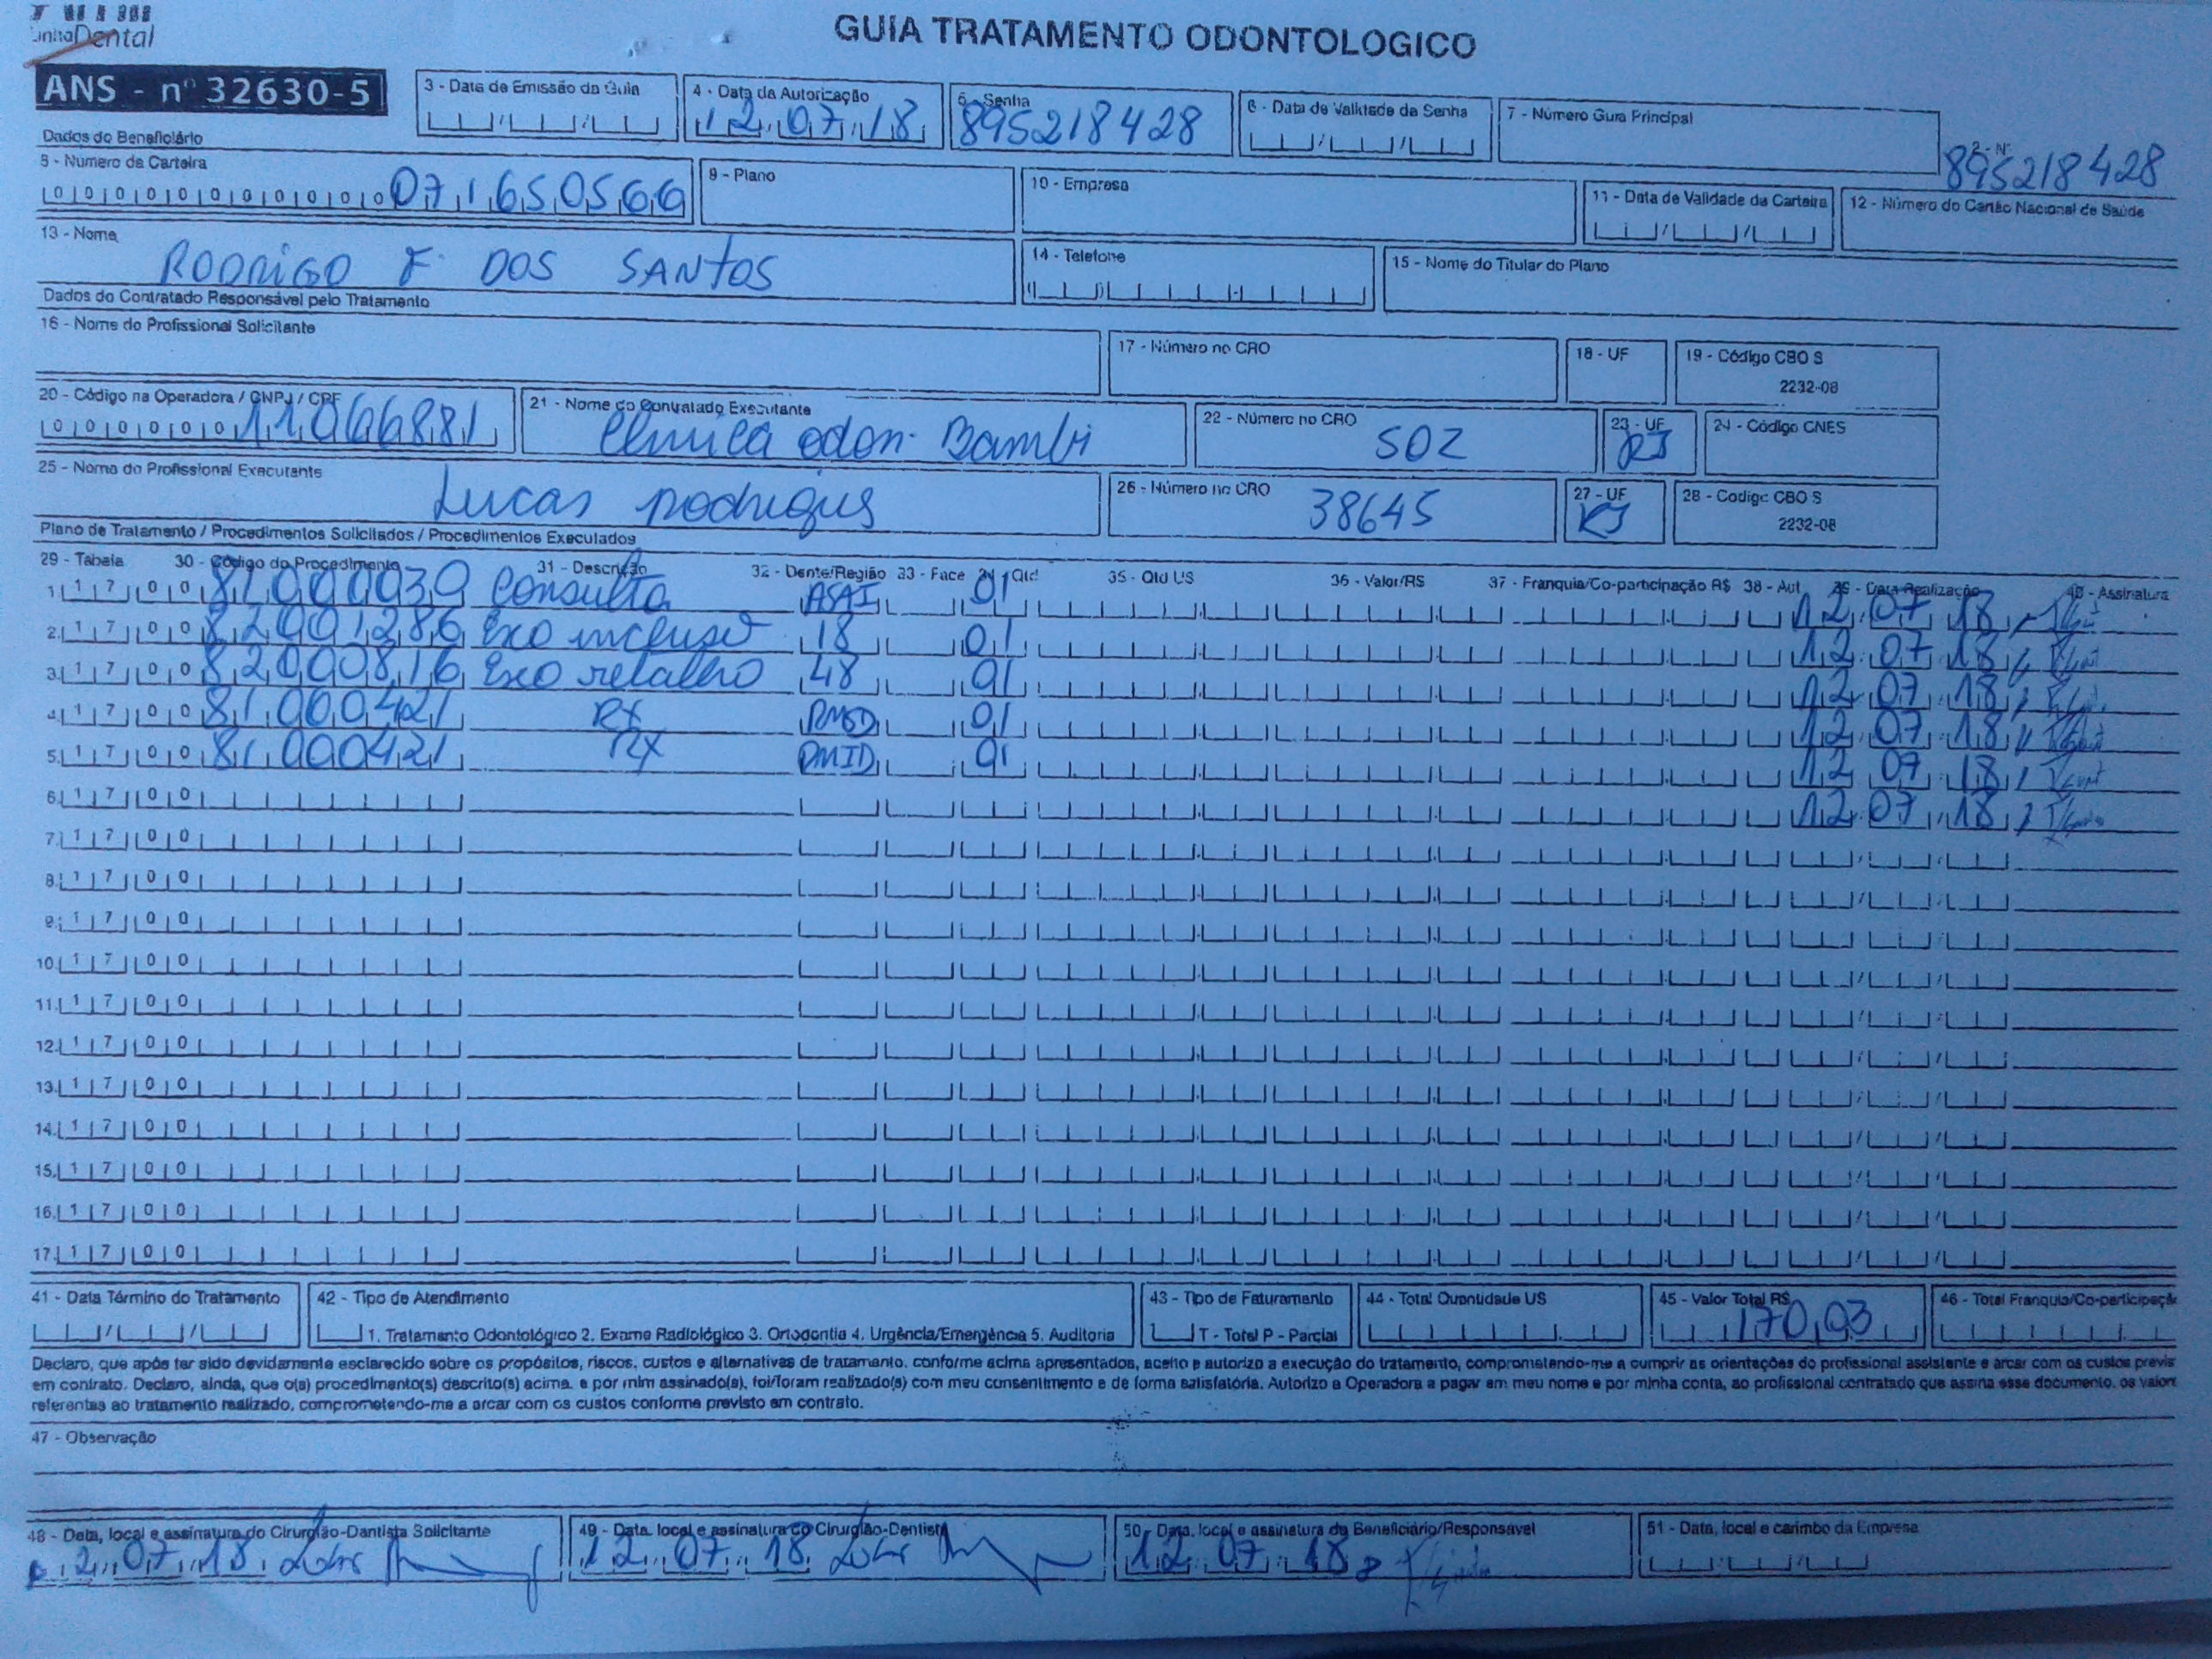 Dental
GUIA TRATAMENTO ODONTOLOGICO
ANS - nº 32630-5
3 - Data de Emissão da Guia
4 - Data da Autorização 12 07 18
5 - Senha 895218428
6 - Data de Validade da Senha
7 - Número Guia Principal
2 - Nº 895218428
Dados do Beneficiário
8 - Numero da Carteira
071650566
9 - Plano
10 - Empresa
11 - Data de Validade da Carteira
12 - Número do Cartão Nacional de Saúde
13 - Nome
RODRIGO F. DOS SANTOS
14 - Telefone
15 - Nome do Titular do Plano
Dados do Contratado Responsável pelo Tratamento
16 - Nome do Profissional Solicitante
17 - Número no CRO
18 - UF
19 - Código CBO S
2232-08
20 - Código na Operadora / CNPJ / CPF
21 - Nome do Contratado Executante
22 - Número no CRO 502
23 - UF RJ
24 - Código CNES
25 - Nome do Profissional Executante
Lucas Rodrigues
26 - Número no CRO 38645
27 - UF RJ
28 - Código CBO S
2232-08
Plano de Tratamento / Procedimentos Solicitados / Procedimentos Executados
29 - Tabela 30 - Código do Procedimento 31 - Descrição 32 - Dente/Região 33 - Face 34 - Qtd 35 - Qtd US 36 - Valor/R$ 37 - Franquia/Co-participação R$ 38 - Aut 39 - Data Realização 40 - Assinatura
1. 1 7 0 0 81000030 Consulta ASAI 01 12 07 18
2. 1 7 0 0 82001286 Exo incluso 18 01 12 07 18
3. 1 7 0 0 82000816 Exo 48 01 12 07 18
4. 1 7 0 0 81000421 RX RMSD 01 12 07 18
5. 1 7 0 0 81000421 RX RMID 01 12 07 18
6. 1 7 0 0 12 07 18
7. 1 7 0 0
8. 1 7 0 0
9. 1 7 0 0
10. 1 7 0 0
11. 1 7 0 0
12. 1 7 0 0
13. 1 7 0 0
14. 1 7 0 0
15. 1 7 0 0
16. 1 7 0 0
17. 1 7 0 0
41 - Data Término do Tratamento
42 - Tipo de Atendimento
1. Tratamento Odontológico 2. Exame Radiológico 3. Ortodontia 4. Urgência/Emergência 5. Auditoria
43 - Tipo de Faturamento
T - Total P - Parcial
44 - Total Quantidade US
45 - Valor Total R$ 170,03
46 - Total Franquia/Co-participação
Declaro, que após ter sido devidamente esclarecido sobre os propósitos, riscos, custos e alternativas de tratamento, conforme acima apresentados, aceito e autorizo a execução do tratamento, comprometendo-me a cumprir as orientações do profissional assistente e arcar com os custos previs
em contrato. Declaro, ainda, que o(s) procedimento(s) descrito(s) acima, e por mim assinado(s), foi/foram realizado(s) com meu consentimento e de forma satisfatória. Autorizo a Operadora a pagar em meu nome e por minha conta, ao profissional contratado que assina esse documento, os valores
referentes ao tratamento realizado, comprometendo-me a arcar com os custos conforme previsto em contrato.
47 - Observação
48 - Data, local e assinatura do Cirurgião-Dentista Solicitante
12 07 18
49 - Data, local e assinatura do Cirurgião-Dentista
12 07 18
50 - Data, local e assinatura do Beneficiário/Responsável
12 07 18
51 - Data, local e carimbo da Empresa